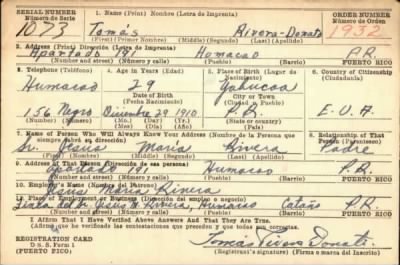 SERIAL NUMBER 1. Name (Print) Nombre (Letra de Imprenta) ORDER NUMBER
Número de Serie Número de Orden
1073 Tomás Rivera-Donato 1932
(First) (Primer Nombre) (Middle) (Segundo) (Last) (Apellido)
2. Address (Print) Dirección (Letra de Imprenta)
Apartado 191 Humacao P.R.
(Number and street) (Número y calle) (Town) (Pueblo) (Barrio) PUERTO RICO
3. Telephone (Teléfono) 4. Age in Years (Edad) 5. Place of Birth (Lugar de Nacimiento) 6. Country of Citizenship (Ciudadanía)
Humacao 29 Yabucoa
Date of Birth City or Town
(Fecha Nacimiento) (Ciudad o Pueblo)
156 Negro Diciembre 29 1910 P.R. E.U.A.
(Number) (Núm.) (Mo.) (Day) (Día) (Yr.) (Año) (State or country)
7. Name of Person Who Will Always Know Your Address (Nombre de la Persona que siempre sabrá su dirección) 8. Relationship of That Person (Parentesco)
Sr. Jesús María Rivera Padre
(Number) (First) (Nombre) (Middle) (Segundo) (Last) (Apellido)
9. Address of That Person (Dirección de esa persona)
Apartado 191 Humacao P.R.
(Number and street) (Número y calle) (Town) (Pueblo) (Barrio) PUERTO RICO
10. Employer's Name (Nombre del Patrono)
Jesús María Rivera
11. Place of Employment or Business (Dirección del empleo o negocio)
Finca del Sr. Jesús M. Rivera, Humacao Cataño P.R.
(Number and street) (Número y calle) (Town) (Pueblo) (Barrio) PUERTO RICO
I Affirm That I Have Verified Above Answers and That They Are True.
(Afirmo que he verificado las contestaciones que preceden y que todas son correctas.)
REGISTRATION CARD
D. S. S. Form 1
Tomas Rivera Donato
(Registrant's signature) (Firma o marca del inscrito)